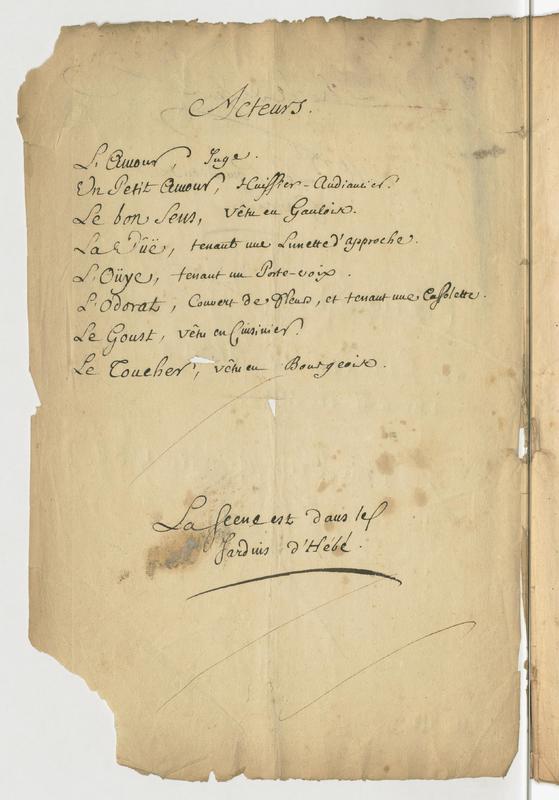 Acteurs.
L'Amour, Juge.
Un Petit Amour, Huissier-Audiancier.
Le bon Sens, vêtu en Gaulois.
La Vüe, tenant une Lunette d'approche.
L'Oüye, tenant un Porte-voix.
L'Odorat, Couvert de fleurs, et tenant une Cassolette.
Le Goust, vêtu en Cuisinier.
Le Toucher, vêtu en Bourgeois.
La scene est dans les
Jardins d'Hébé.